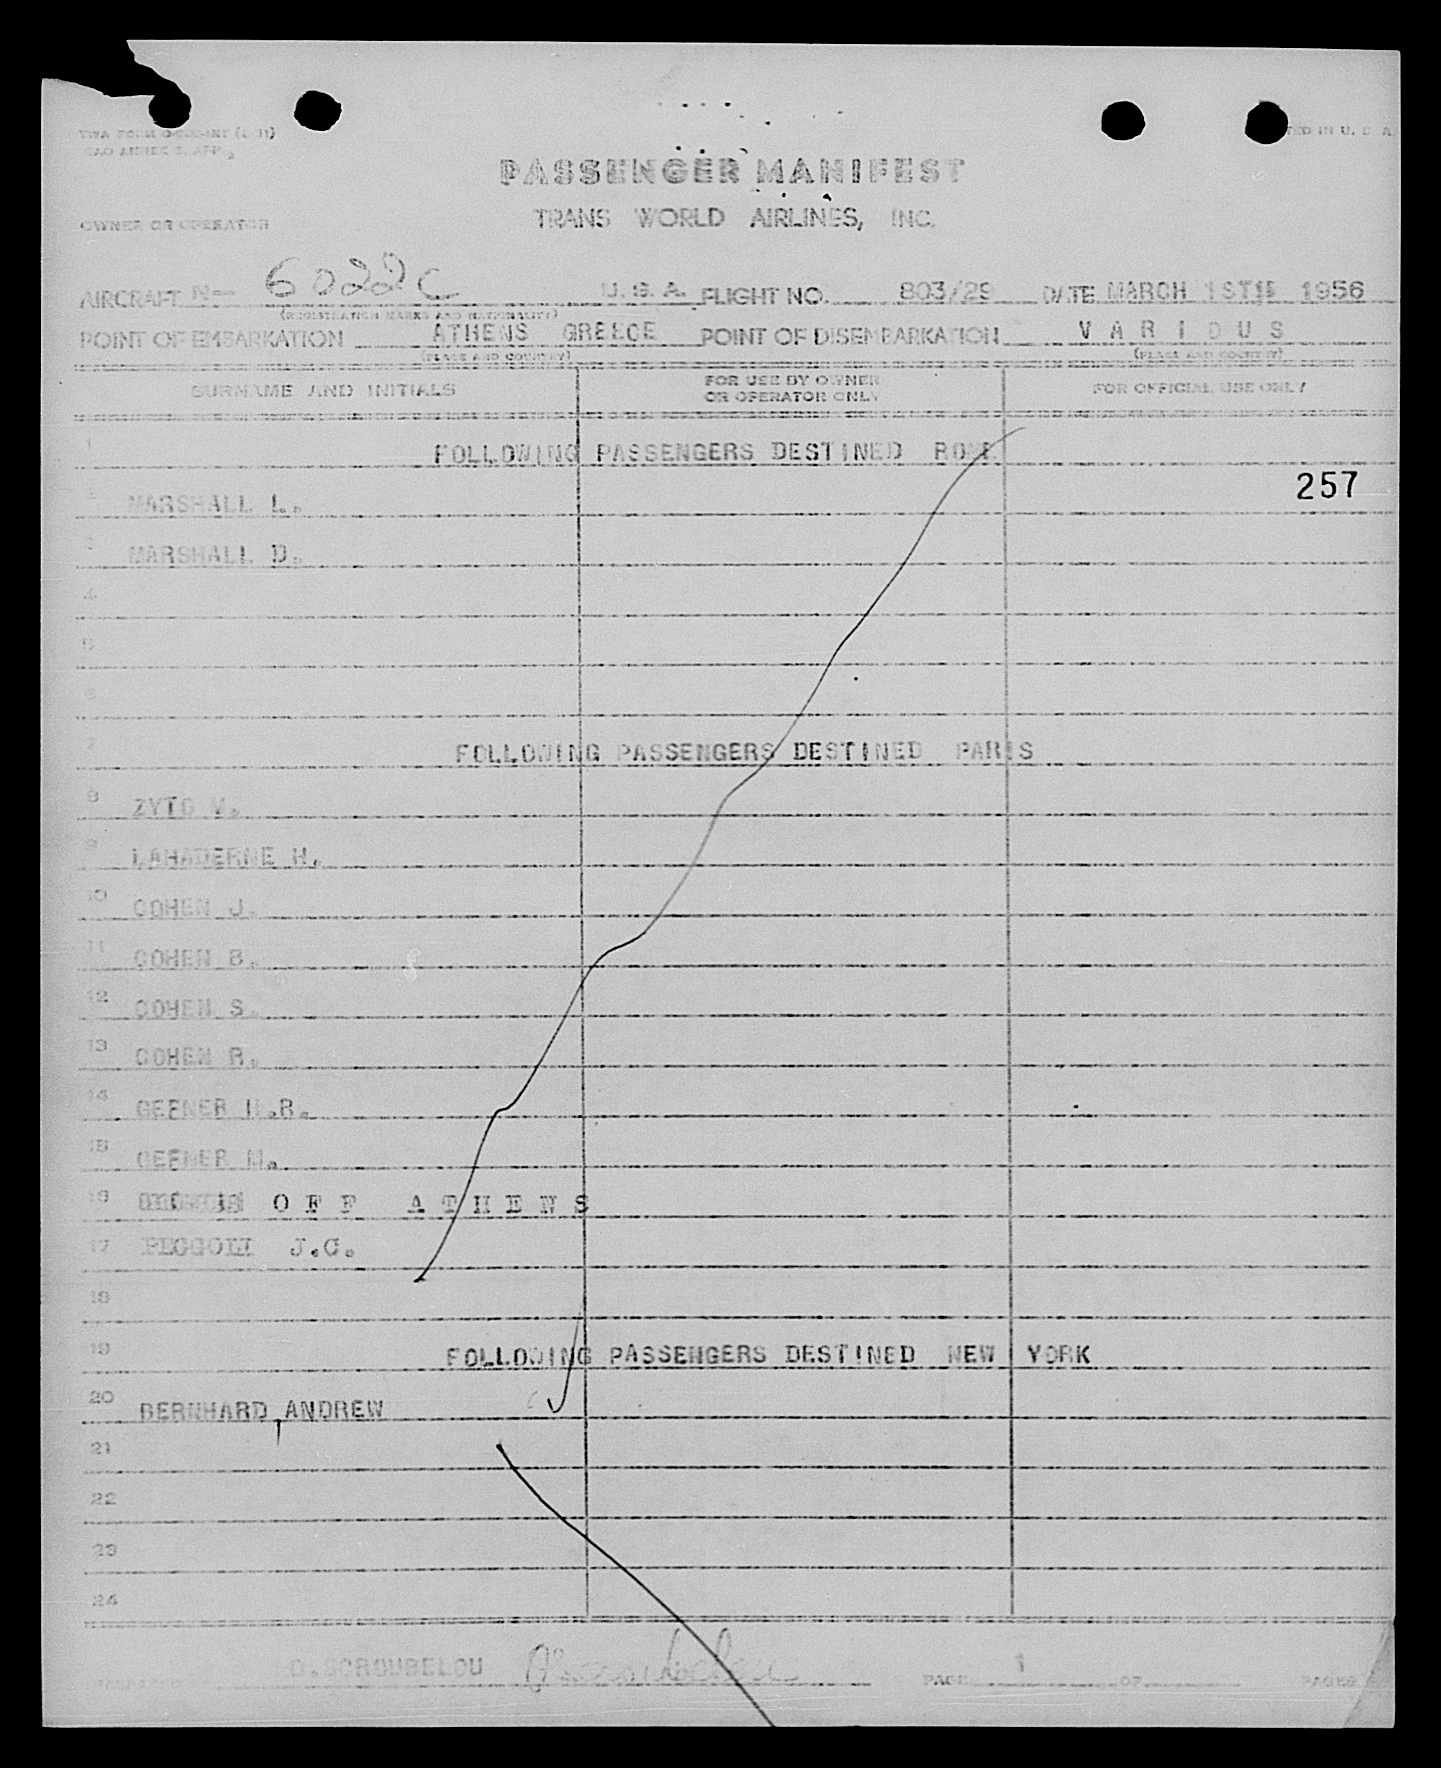 PASSENGER MANIFEST
OWNER OR OPERATOR TRANS WORLD AIRLINES, INC.
AIRCRAFT N— 6022C U.S.A. FLIGHT NO. 803/29 DATE MARCH 1ST 1956
(REGISTRATION MARKS AND NATIONALITY)
POINT OF EMBARKATION ATHENS GREECE POINT OF DISEMBARKATION V A R I O U S
(PLACE AND COUNTRY) (PLACE AND COUNTRY)
SURNAME AND INITIALS FOR USE BY OWNER OR OPERATOR ONLY FOR OFFICIAL USE ONLY
1 FOLLOWING PASSENGERS DESTINED ROME
257
2 MARSHALL L.
3 MARSHALL D.
4
5
6
7 FOLLOWING PASSENGERS DESTINED PARIS
8 ZYTO M.
9 LAHADERNE H.
10 COHEN J.
11 COHEN B.
12 COHEN S.
13 COHEN R.
14 GEFNER H.R.
15 GEFNER M.
16 O F F A T H E N S
17 J.C.
18
19 FOLLOWING PASSENGERS DESTINED NEW YORK
20 BERNHARD, ANDREW
21
22
23
24
PAGE 1 OF PAGES